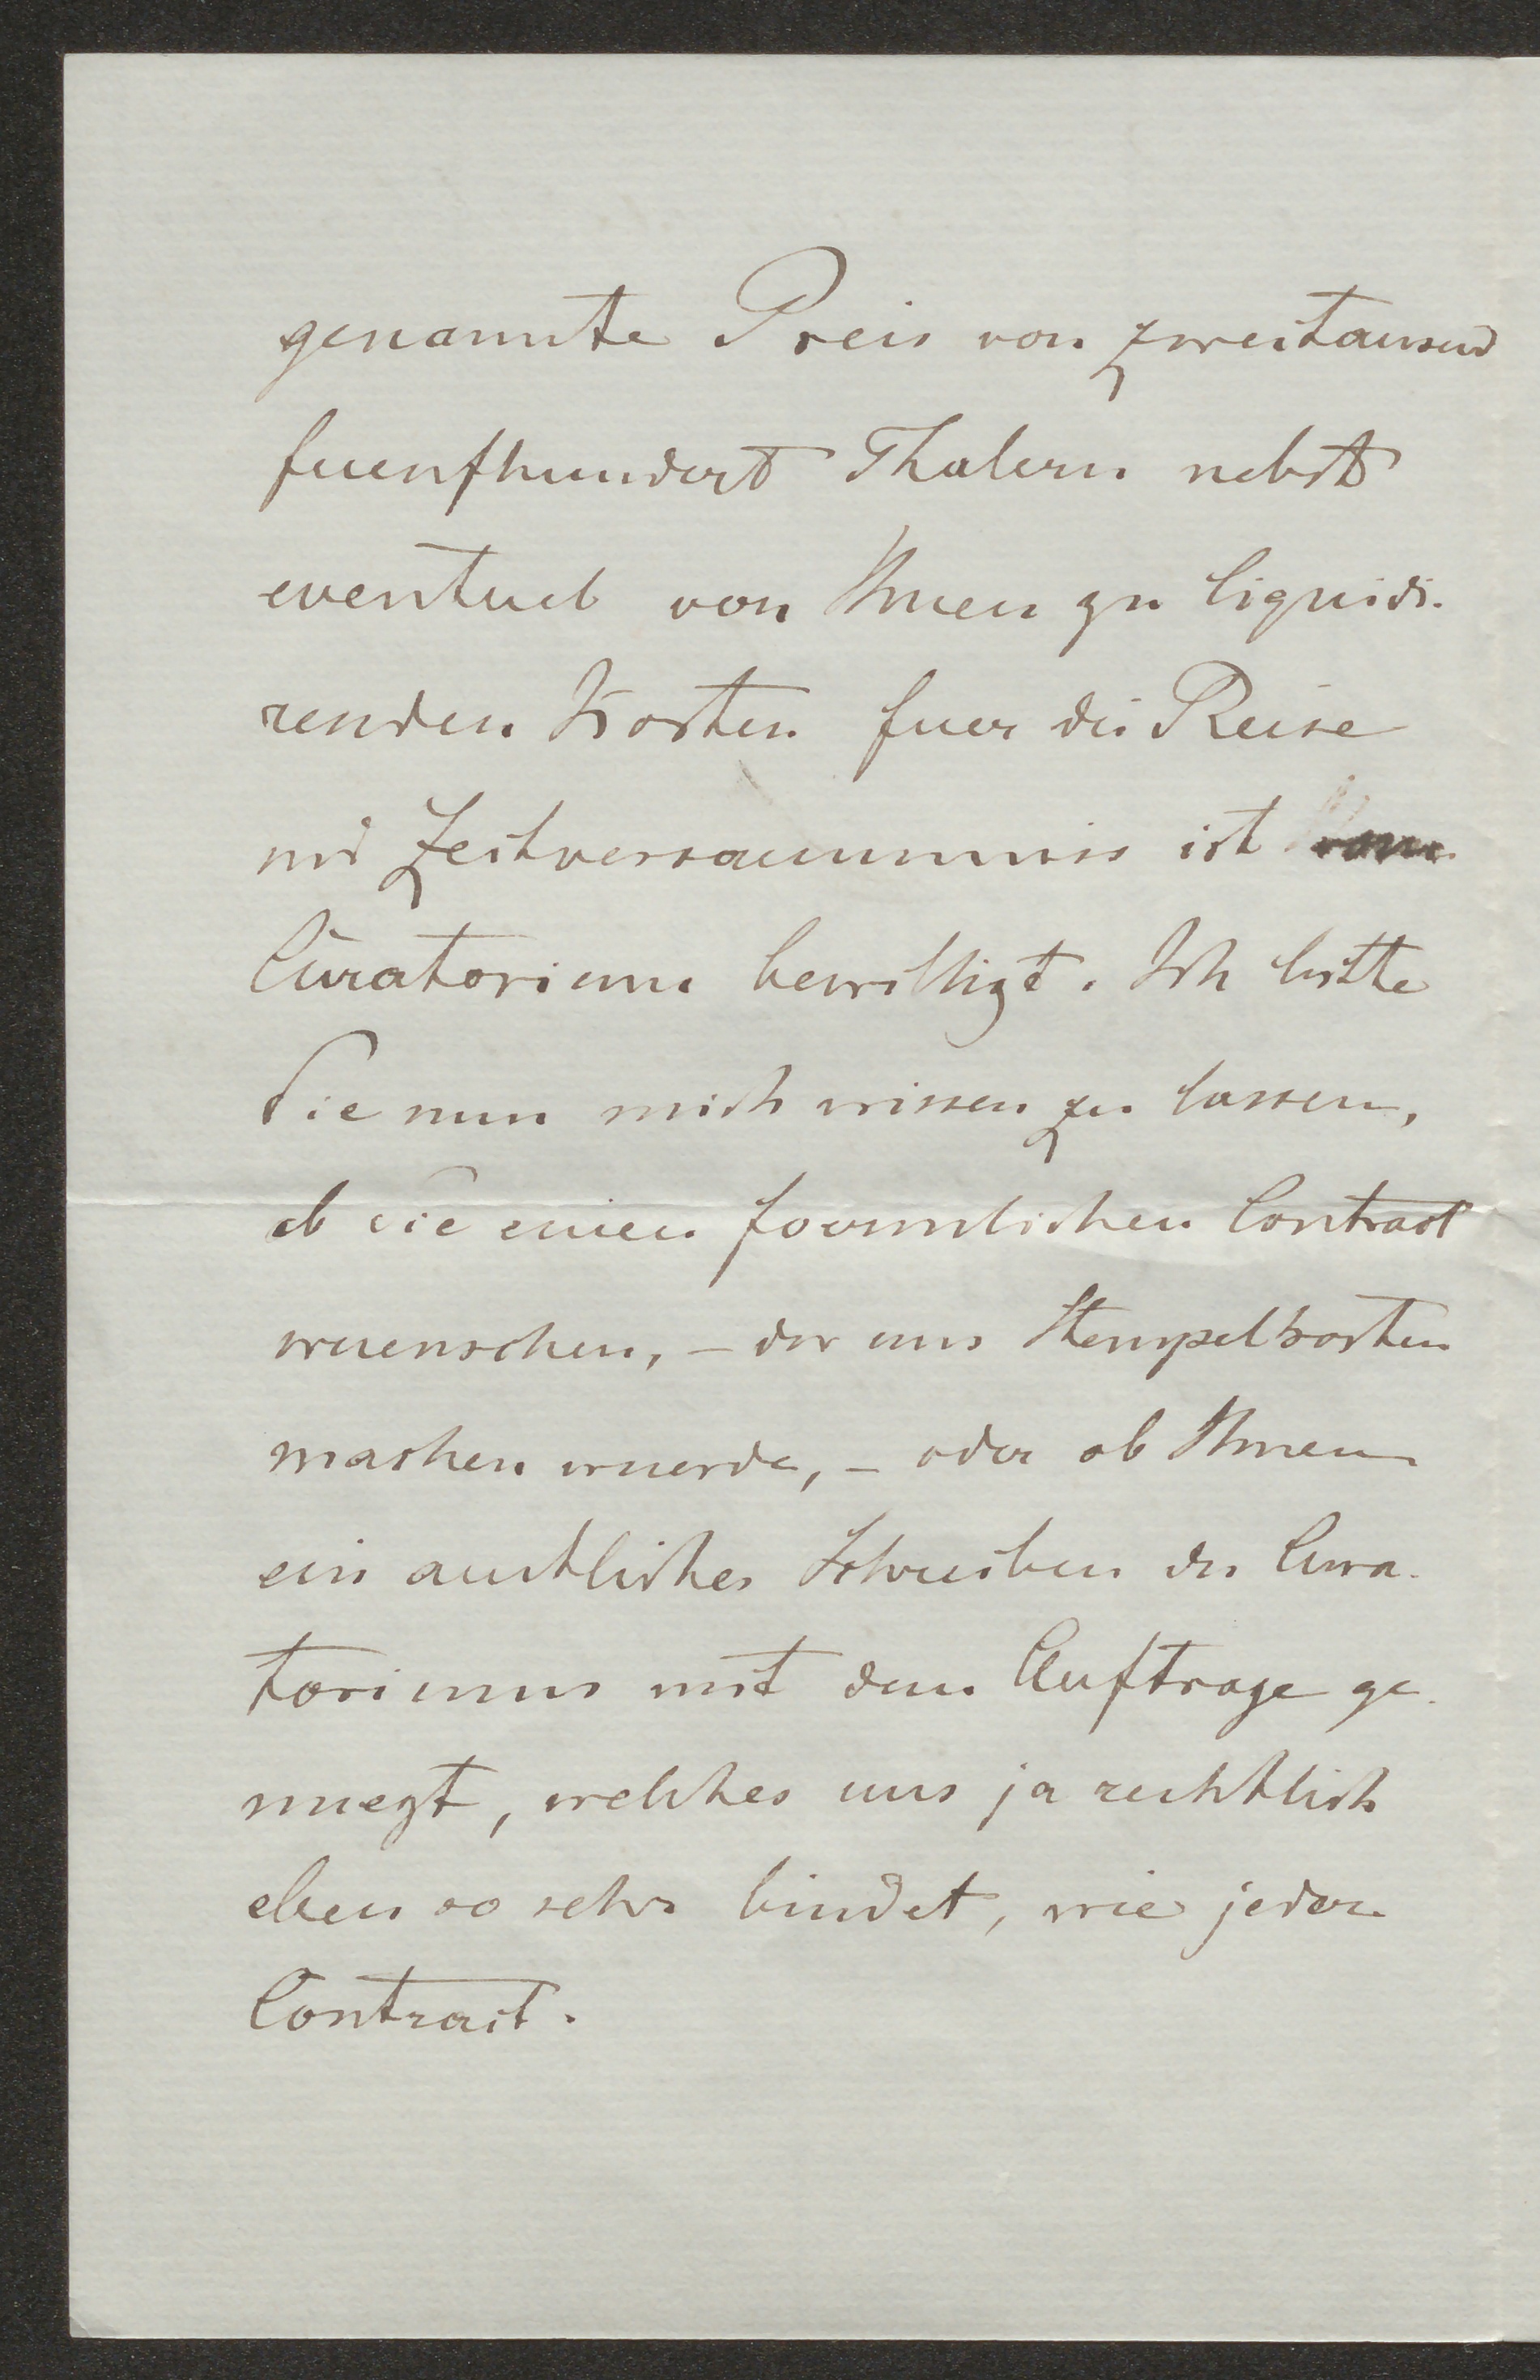 genannte Preis von zweitausend
fuenfhundert Thalern nebst
eventuel von Ihnen zu liquidi-
renden Kosten fuer die Reise
und Zeitversaeumniss ist vom
Curatorium bewilligt. Ich bitte
Sie nun mich wissen zu lassen,
ob Sie einen foermlichen Contract
wuenschen, – der uns Stempelkosten
machen wuerde, – oder ob Ihnen
ein amtliches Schreiben des Cura-
toriums mit dem Auftrage ge-
nuegt, welches uns ja rechtlich
eben so sehr bindet, wie jeder
Contract.